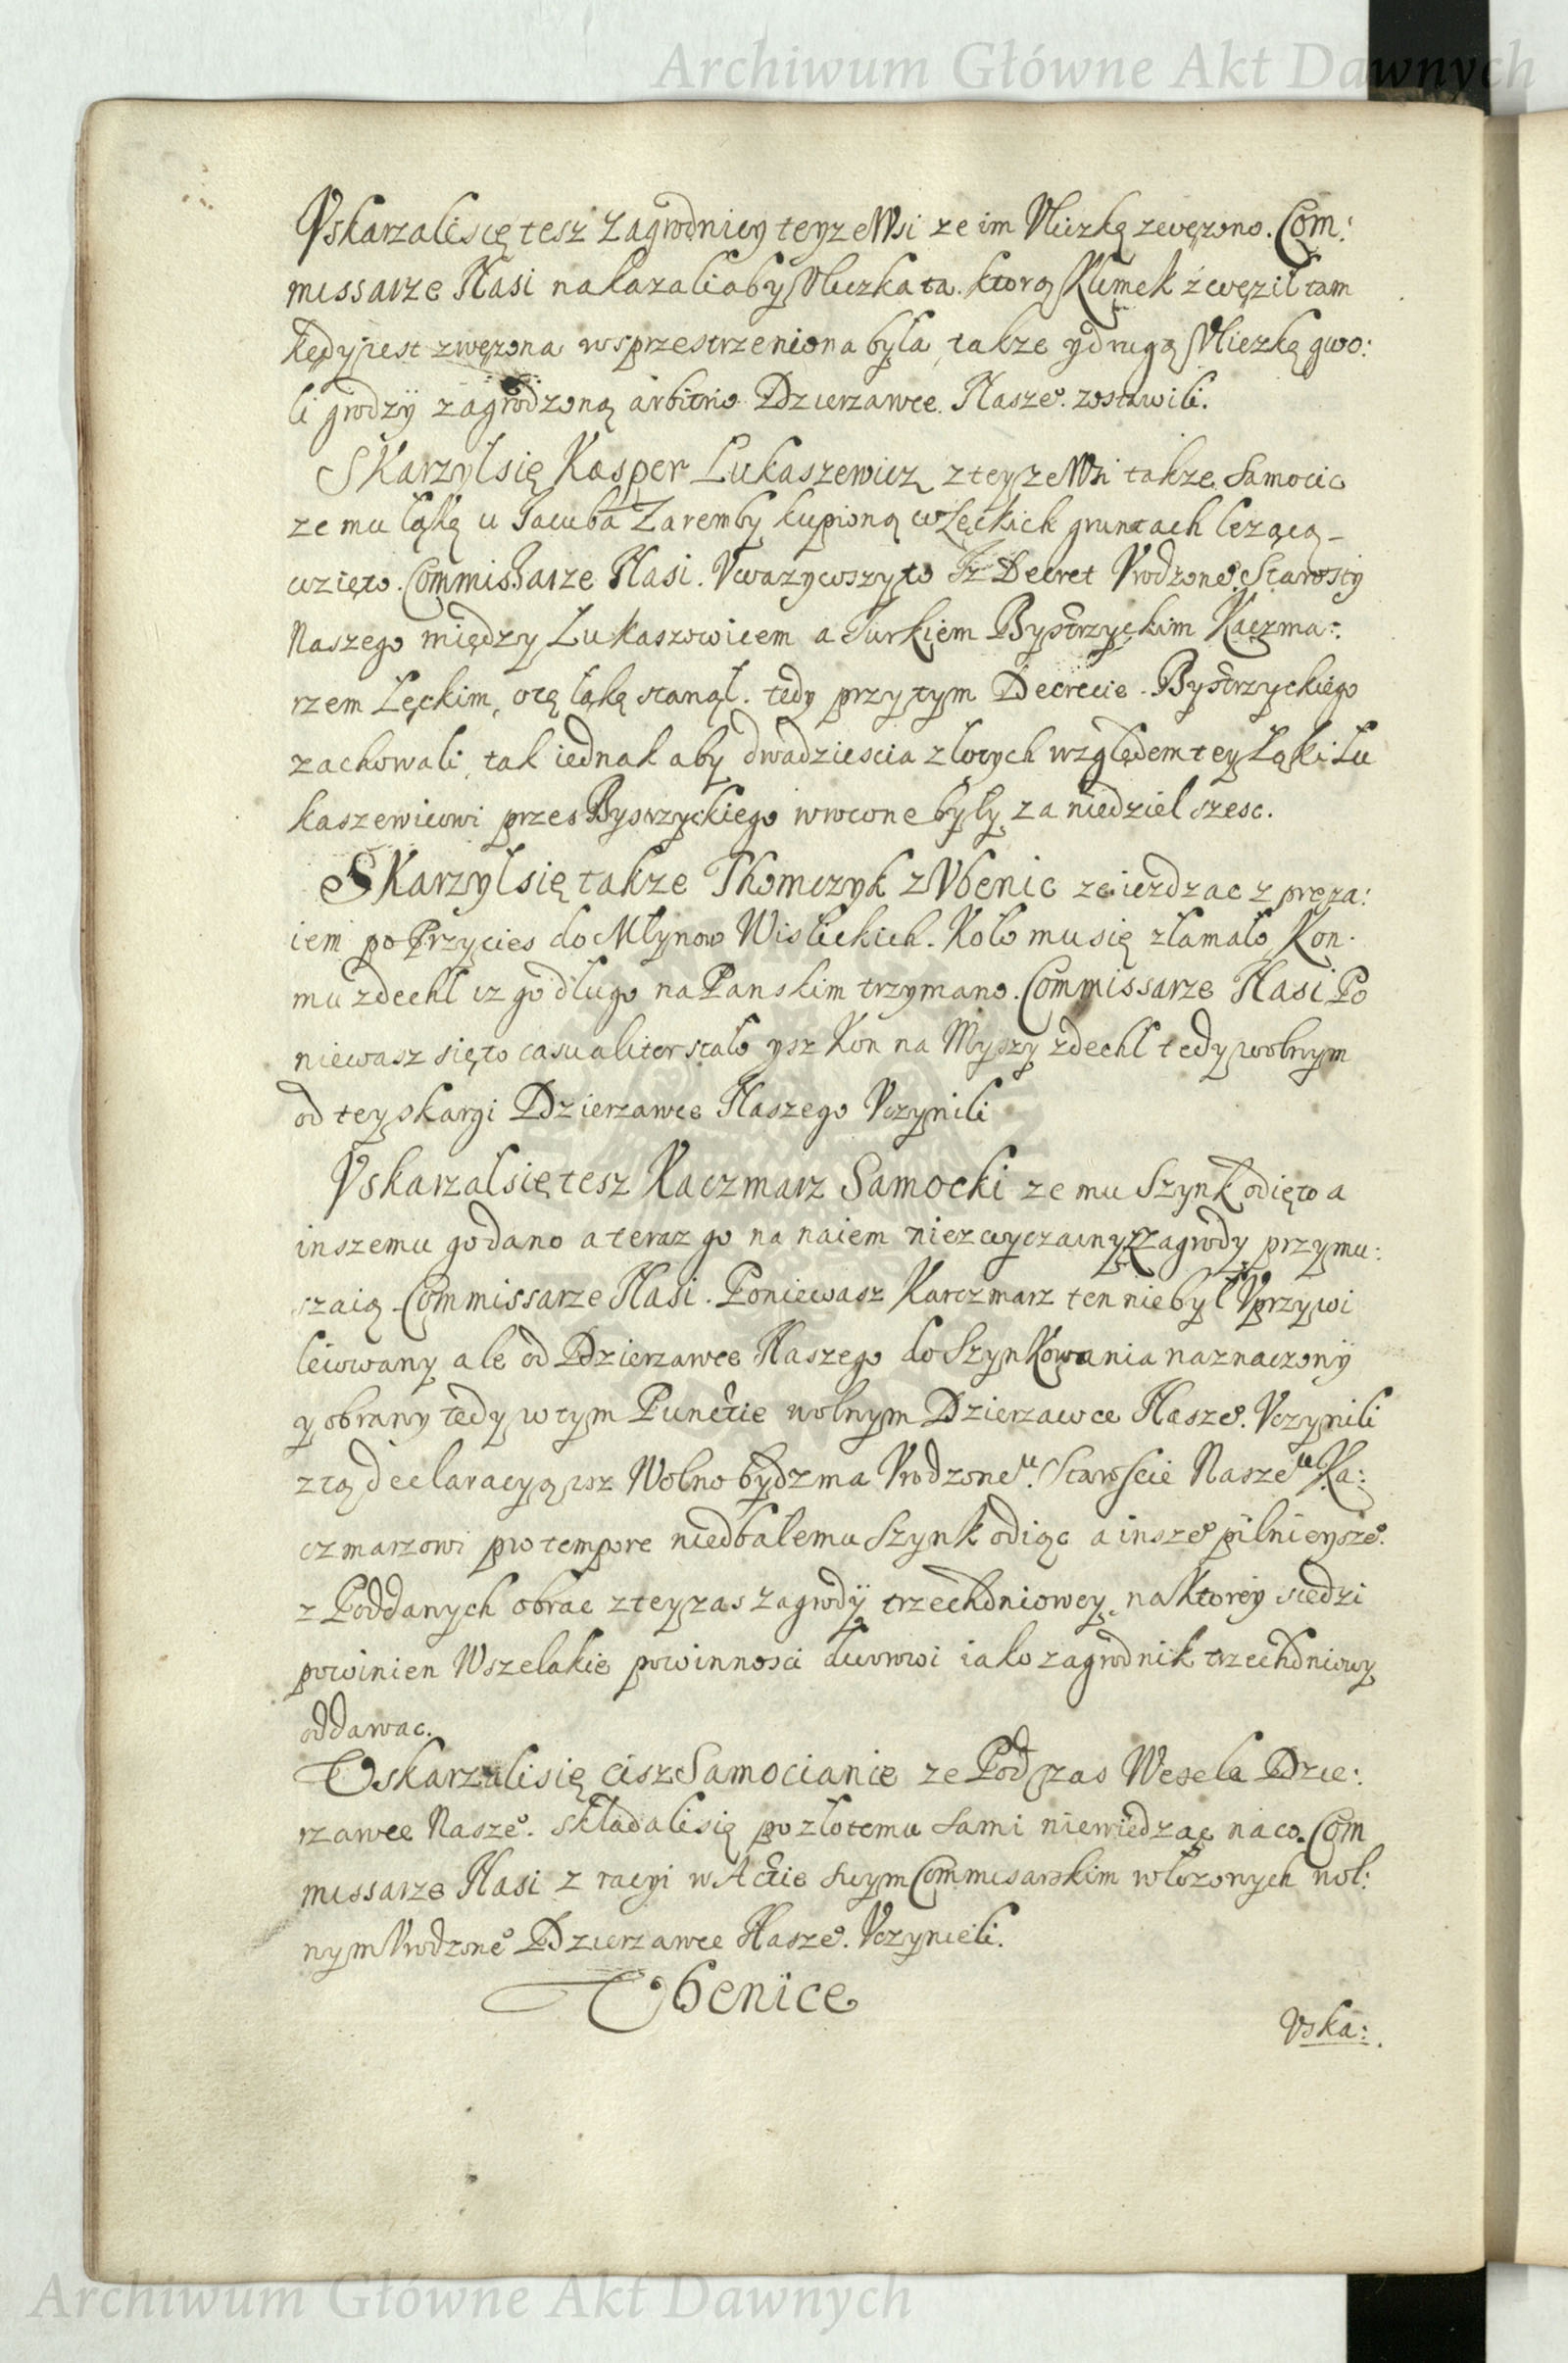 Archiwum Główne Akt Dawnych
Vskarzali się tesz Zagrodnicy teyze Wsi ze im Vliczkę zwęzono. Com:
missarze Nasi nakazali aby Vliczka ta. ktorą Klimek zwęził tam
kędy iest zwęzona wsprzestrzeniona była, takze y drugą Vliczkę gwo:
li grodzÿ zagrodzoną arbitrio Dzierzawce. Nasze°. zostawili.
Skarzył się Kasper Lukaszewicz z teyze Wsi takze Samocic
ze mu łąkę u Iacuba Zaremby kupioną w Łęckich gruntach lezącą
wzięto. Commissarze Nasi. Vwazywszy to Iz Decret Vrodzone°. Starosty
Naszego między Lukaszowicem a Iurkiem Bystrzyckim Kaczma:
rzem Łęckim, o tę łąkę stanął. tedy przy tym Decrecie. Bystrzyckiego
zachowali, tak iednak aby dwadziescia złotych względem tey Łąki Lu
kaszewicowi przes Bystrzyckiego wrocone były za niedziel szesc.
Skarzył się takze Thomczyk z Vbenic ze iezdzac z pręza:
iem po Przycies do Młynow Wislickich. Koło mu się złamało Kon
mu zdechł iz go długo na Panskim trzymano. Commissarze Nasi Po
niewasz się to casualiter stało ysz Kon na Myszy zdechł tedy wolnym
od tey skargi Dzierzawce Naszego Vczynili
Vskarzał się tesz Kaczmarz Samocki ze mu Szynk odięto a
inszemu go dano a teraz go na naiem niezwyczainy z zagrody przymu:
szaią. Commissarze Nasi. Poniewasz Karczmarz ten nie był Vprzywi
leiowany ale od Dzierzawce Naszego do Szynkowania naznaczonÿ
y obrany tedy w tym Punctie wolnym Dzierzawce Nasze°. Vczynili
z tą declaracyą isz Wolno bydz ma Vrodzone͏ᵘ. Staroscie Nasze͏ᵘ Ka:
czmarzowi pro tempore niedbałemu Szynk odiąc a insze° pilnieysze°.
z Poddanych obrac z tey zas zagrodÿ trzechdniowey, na ktorey siedzi
powinien Wszelakie powinnosci dworowi iako zagrodnik trzechdniowy
oddawac.
Vskarzali się cisz Samocianie ze Podczas Wesela Dzie:
rzawce Nasze°. składali się po złotemu sami niewiedząc na co. Com
missarze Nasi z racyi w Actie swym Commisarskim włozonych wol:
nym Vrodzone° Dzierzawce Nasze°. Vczynieli.
Vbenice
Vska:
Archiwum Główne Akt Dawnych